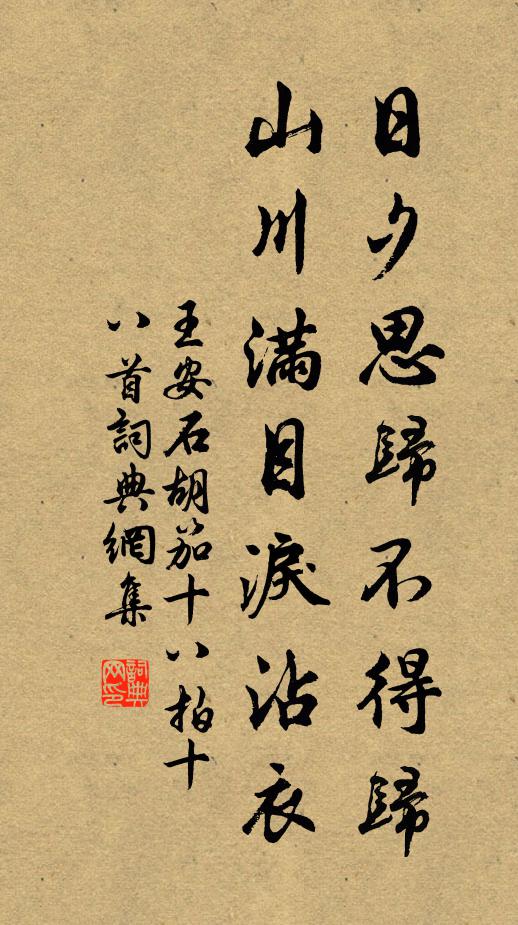 日夕思歸不得歸
山川滿目淚沾衣
王安石胡笳十八拍十
八首詞典網集
詞典
网印